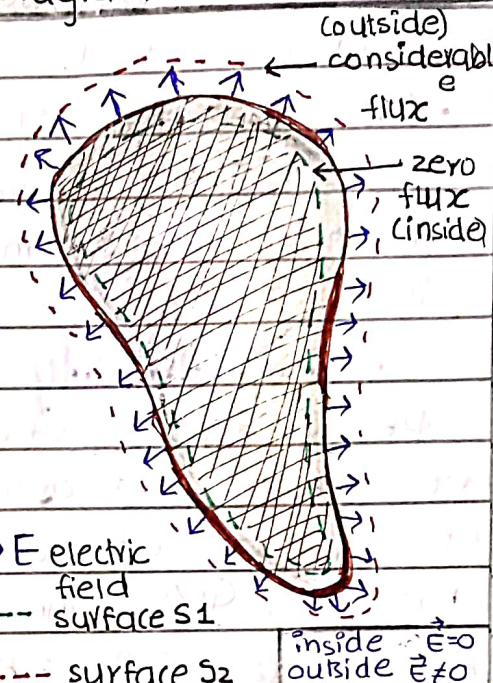 (outside)
considerabl
e
flux
zero
flux
(inside)
E electric
field
surface S1
surface S2
inside E⃗=0
outside E⃗≠0